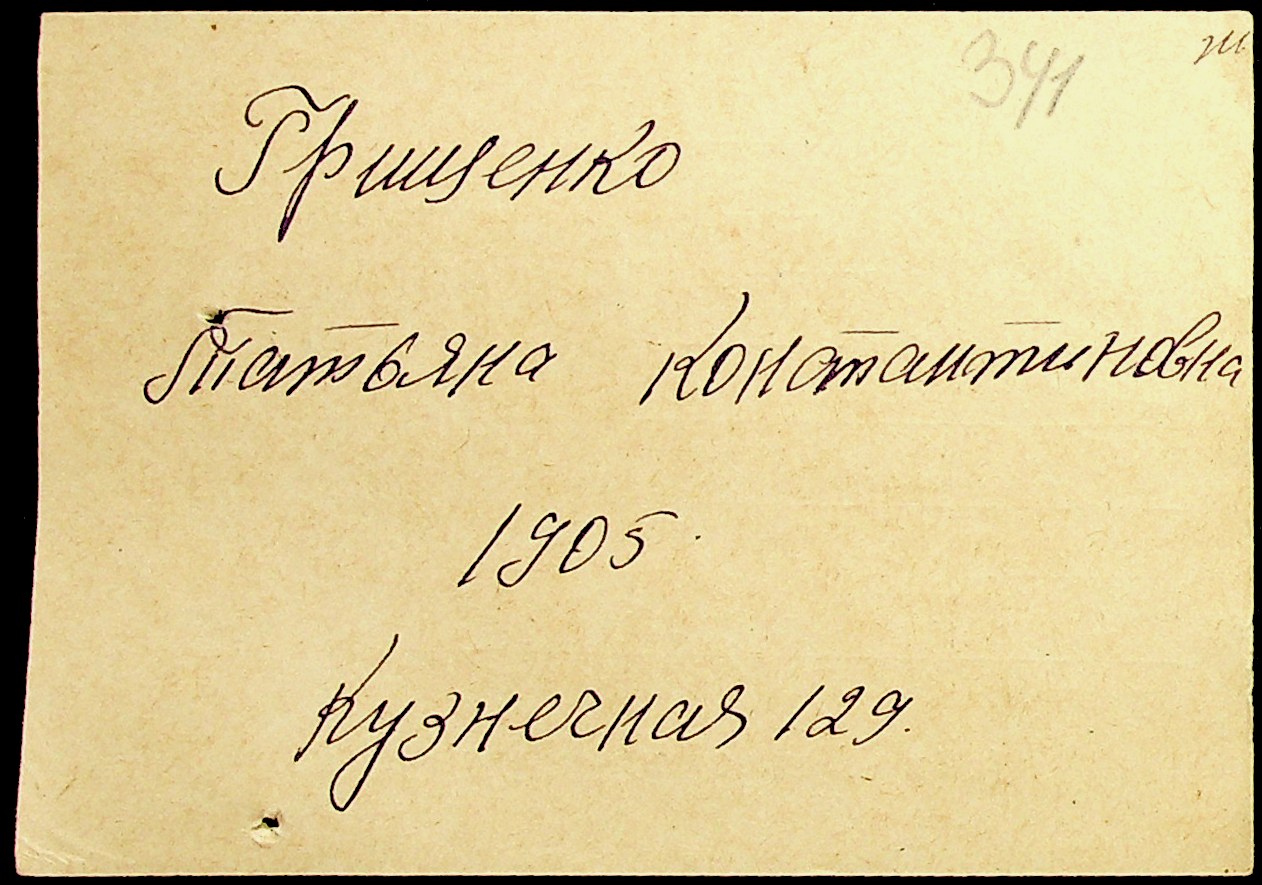 341
Грищенко
Татьяна Константиновна
1905
Кузнечная 129.